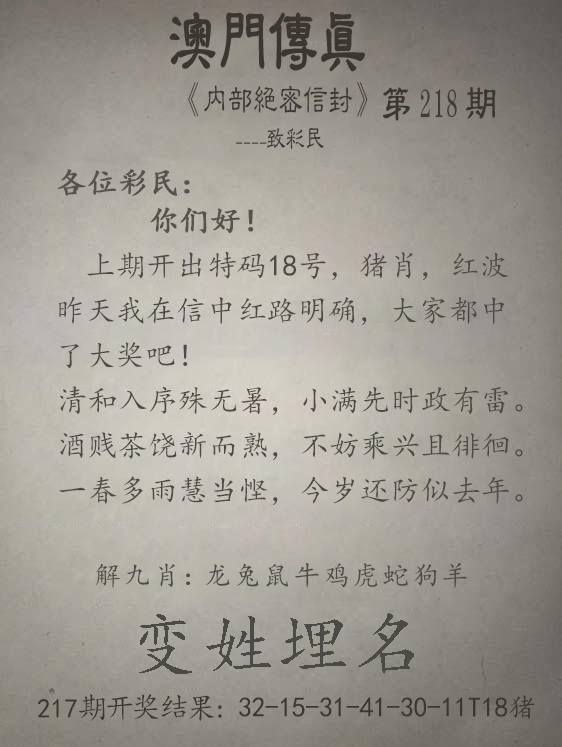 澳門傳真
《内部絕密信封》第218期
----致彩民
各位彩民:
你们好!
上期开出特码18号，猪肖，红波
昨天我在信中红路明确，大家都中
了大奖吧!
清和入序殊无暑，小满先时政有雷。
酒贱茶饶新而熟，不妨乘兴且徘徊。
一春多雨慧当悭，今岁还防似去年。
解九肖:龙兔鼠牛鸡虎蛇狗羊
变姓埋名
217期开奖结果:32-15-31-41-30-11T18猪